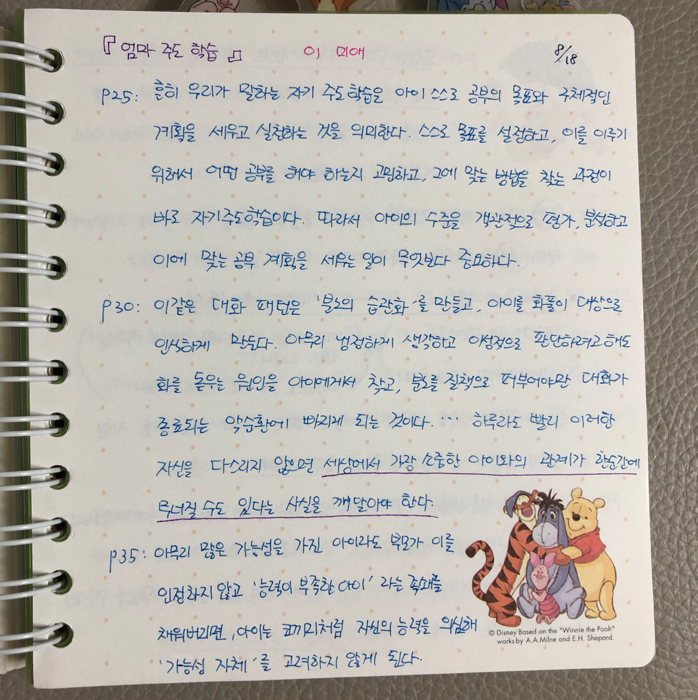 『엄마 주도 학습』 이 미애 8/18
p25: 흔히 우리가 말하는 자기 주도학습은 아이 스스로 공부의 목표와 구체적인
계획을 세우고 실천하는 것을 의미한다. 스스로 목표를 설정하고, 이를 이루기
위해서 어떤 공부를 해야 하는지 고민하고, 그에 맞는 방법을 찾는 과정이
바로 자기주도학습이다. 따라서 아이의 수준을 객관적으로 평가, 분석하고
이에 맞는 공부 계획을 세우는 일이 무엇보다 중요하다.
p30: 이같은 대화 패턴은 '분노의 습관화'를 만들고, 아이를 화풀이 대상으로
인식하게 만든다. 아무리 냉정하게 생각하고 이성적으로 판단하려고 해도
화를 돋우는 원인을 아이에게서 찾고, 분노를 질책으로 퍼부어야만 대화가
종료되는 악순환에 빠지게 되는 것이다. … 하루라도 빨리 이러한
자신을 다스리지 않으면 세상에서 가장 소중한 아이와의 관계가 한순간에
무너질 수도 있다는 사실을 깨달아야 한다.
p35: 아무리 많은 가능성을 가진 아이라도 부모가 이를
인정하지 않고 '능력이 부족한 아이' 라는 족쇄를
채워버리면, 아이는 코끼리처럼 자신의 능력을 의심해
'가능성 자체'를 고려하지 않게 된다.
© Disney Based on the "Winnie the Pooh"
works by A.A.Milne and E.H. Shepard.